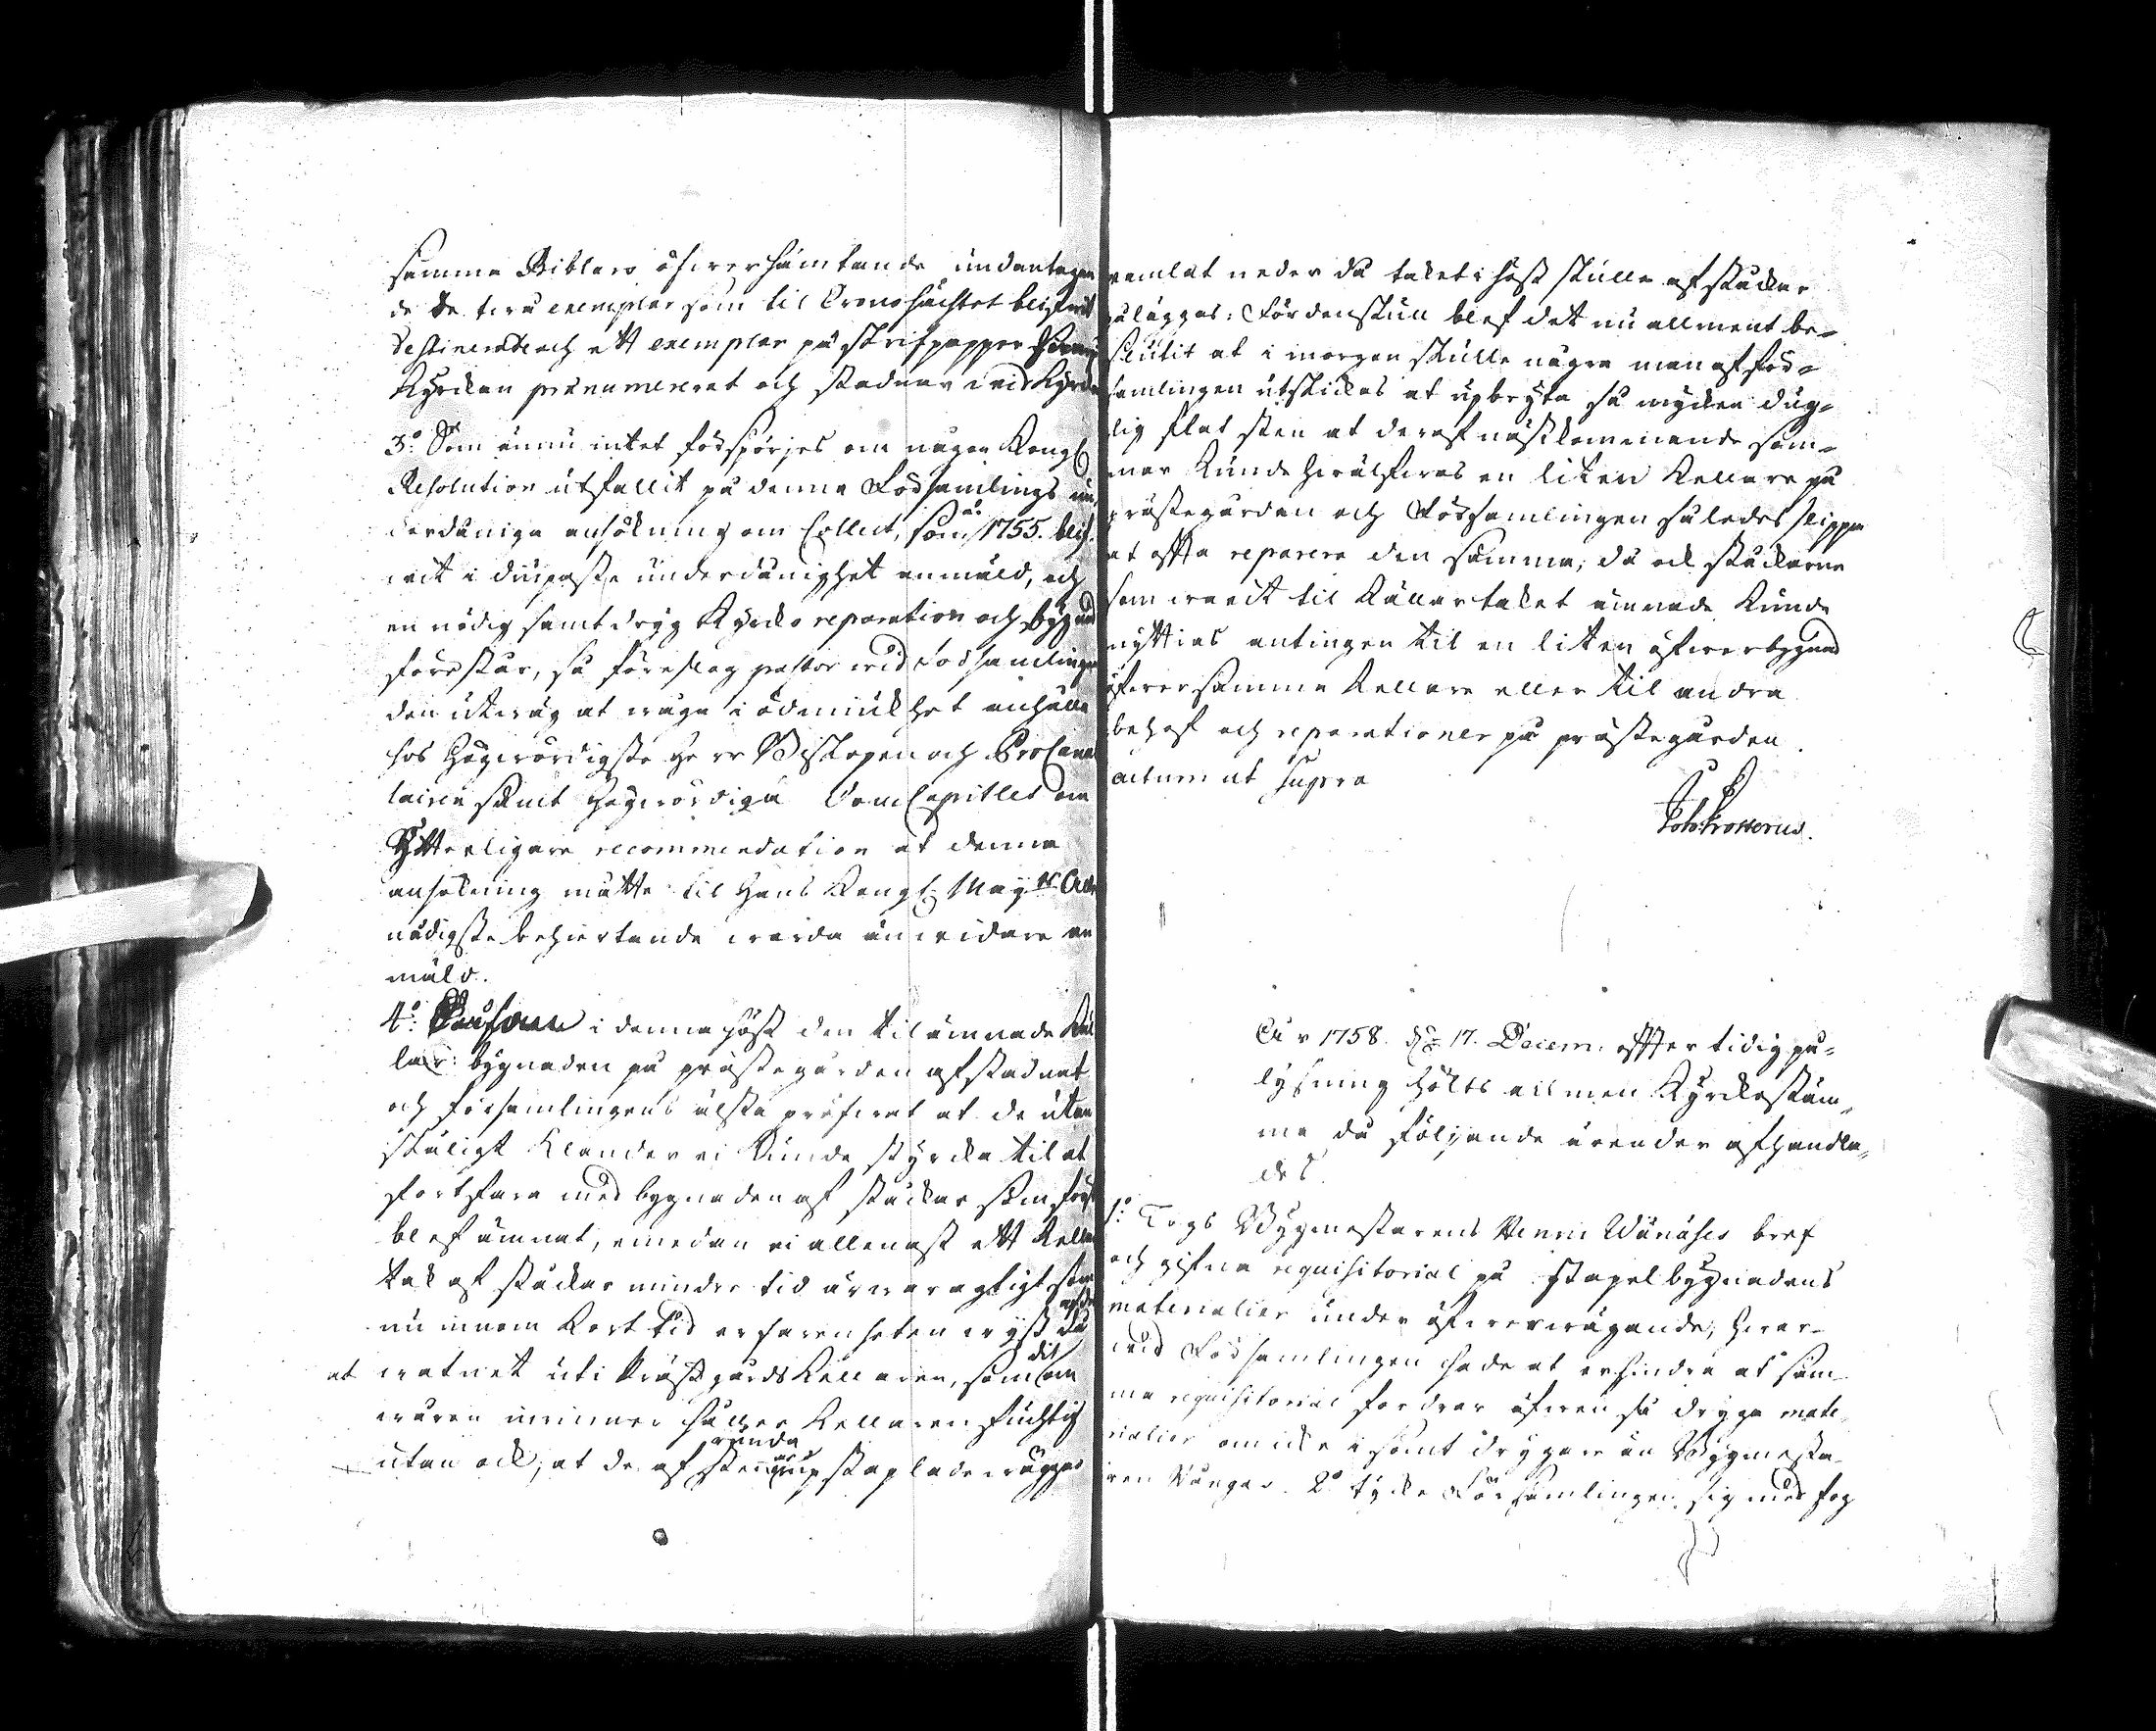 samma Biblars öfwerhämtande undantagan
de de twu exemplar som til Cronohächtet blifwit
destinerade och ett exemplar på skrifpapper hwarpå
Kyrckan prænumererat och stadnar wid Kyrckan
3:o Som ännu intet förspörjes om någon Kongl.
Resolution utfallit på denna Församlings un
derdåniga ansökning om Collect, som ao 1755. blif-
wit i diupaste underdånighet anmäld, och
en nödig samt dryg Kyrcko reparation och bygnad
förestår, så föreslog pastor wid Församlingen
den utwäg at wåga i ödmiukhet anhålla
hos Högwördigste Herr Biskopen och ProCancel
lairen samt Högwördiga DomCapitlet om
Ytterligare recommendation at denna
ansökning måtte til Hans Kongl. May:ts Aller
nådigste behiertande warda än widare an
mäld.
4:o i denna höst den tilämnade Käl
lar: bygnaden på prästegården afstadnat
och församlingens älsta pröfwat at de utan
skäligt Klander ei kunde skyrcka til at
fortfara med bygnaden af stäckar som först
blef ämnat, emedan ei allenast ett Kellar
tak af stäckar mindre tid är waragtigt som
nu innom Kort tid erfarenheten wyst
at watnet uti Prästgårds Kellaren, som om
wåren immer håller Kellaren fuchtig
utan ock, at de af runda stenar upstaplade wäggar
ramlat neder då taket i höst skulle af stäckar
påläggas: Fördenskull blef det nu allment be-
slutit at i morgon skulle några man af för-
samlingen utskickas at upbryta så mycken dug-
lig flat sten at deraf nästkommande som-
mar Kunde hwälfwas en liten Kellare på
prästegården och Församlingen således slippa
at offta reparera den samma, då ock stäckarne
som warit til Källartaket ämnade Kunde
nyttias antingen til en liten öfwerbygnad
öfwer samma Kellare eller til andra
behof och reparationer på prästegården.
actum ut supra
Joh: Frosterus.
Åhr 1758. d. 17. Decem. effter tidig på-
lysning hölts allmen Kyrckostäm-
ma då följande ärender afhandla-
des.
1:o Togs Bygmestarens Henric Wänähes bref
och gifna requisitorial på stapelbygnadens
materialier under öfwerwägande; hwar-
wid Församlingen hade at erhindra at sam-
ma requisitorial fordrar öfwer så dryga mate-
rialier om icke i somt drygare än Bygmesta-
ren 2:o tyckte Församlingen sig med fog